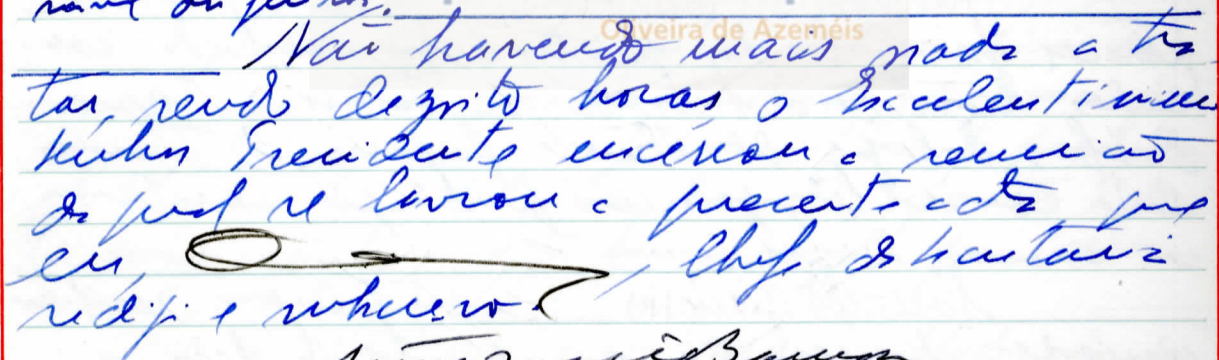 Oliveira de Azeméis
Não havendo mais nada a tra
tar, sendo dezoito horas, o Excelentissimo
Senhor Presidente encerrou a reunião
da qual se lavrou a presente acta, que
eu, , Chefe de Secretaria
redigi e subscrevo.